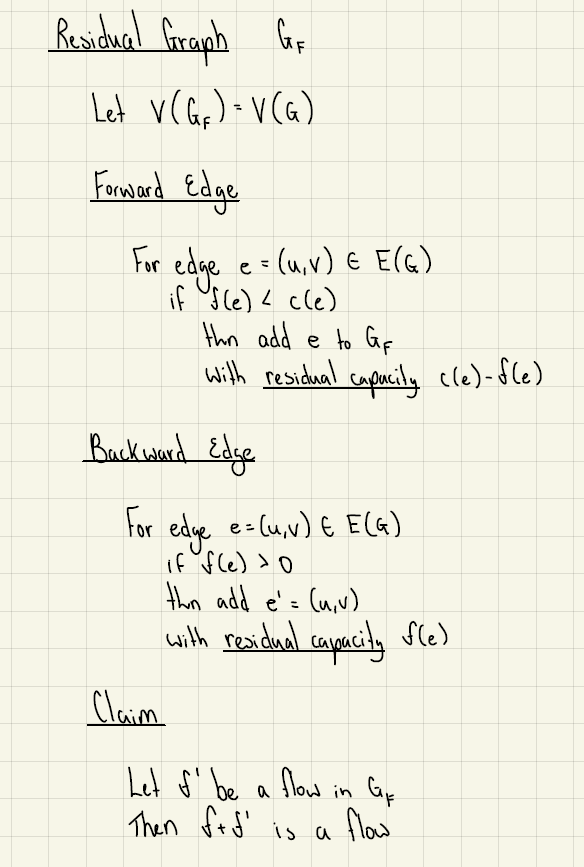 Residual Graph G_F
Let V(G_F) = V(G)
Forward Edge
For edge e = (u,v) ∈ E(G)
if f(e) < c(e)
thn add e to G_F
with residual capacity c(e)-f(e)
Backward Edge
For edge e=(u,v) ∈ E(G)
if f(e) > 0
thn add e' = (u,v)
with residual capacity f(e)
Claim
Let f' be a flow in G_F
Then f+f' is a flow